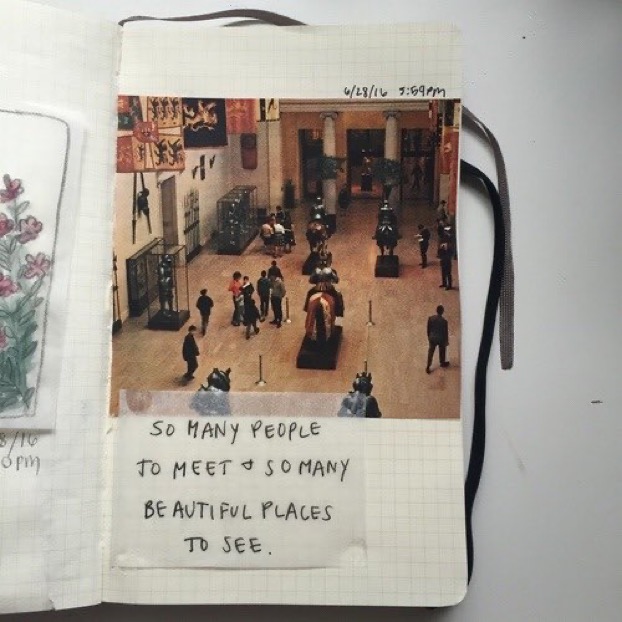 8/16
0 PM
6/28/16 5:59PM
SO MANY PEOPLE
TO MEET & SO MANY
BEAUTIFUL PLACES
TO SEE.